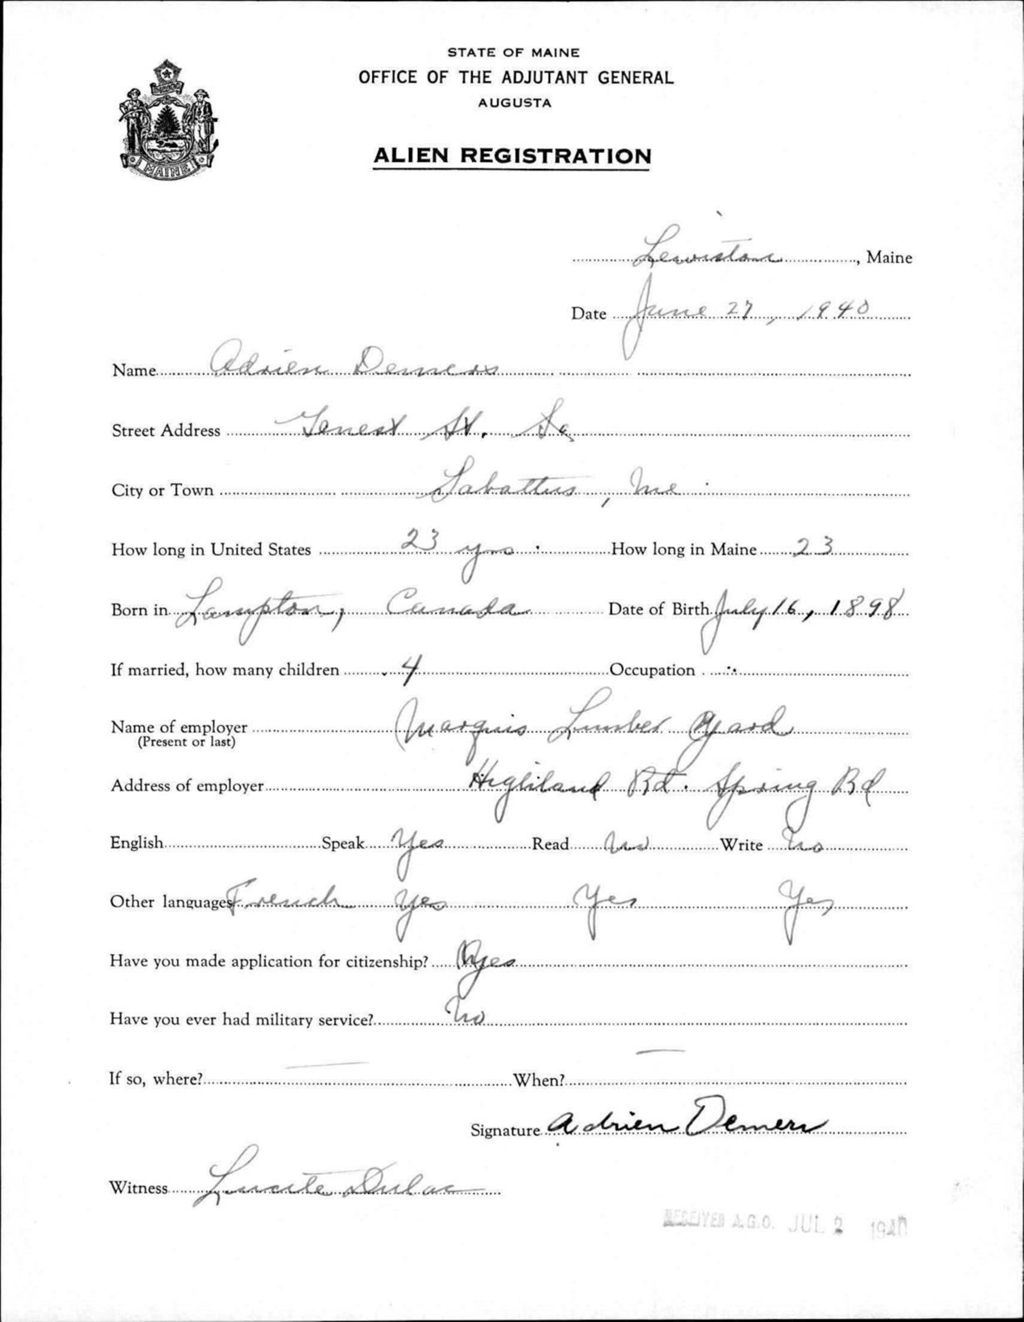 STATE OF MAINE
OFFICE OF THE ADJUTANT GENERAL
AUGUSTA
MAINE
ALIEN REGISTRATION
Lewiston, Maine
Date June 27, 1940
Name Adrien Demers
Street Address Genest St.
City or Town Sabattus, Me
How long in United States 23 yrs. How long in Maine 23
Born in Lampton, Canada Date of Birth July 16, 1898
If married, how many children 4 Occupation
Name of employer Marquis Lumber Yard
(Present or last)
Address of employer Highland Rd. Spring Rd
English Speak Yes Read No Write No
Other languages French Yes Yes Yes
Have you made application for citizenship? Yes
Have you ever had military service? No
If so, where? — When? —
Signature Adrien Demers
Witness Lucile Dulac
RECEIVED A.G.O. JUL 2 1940